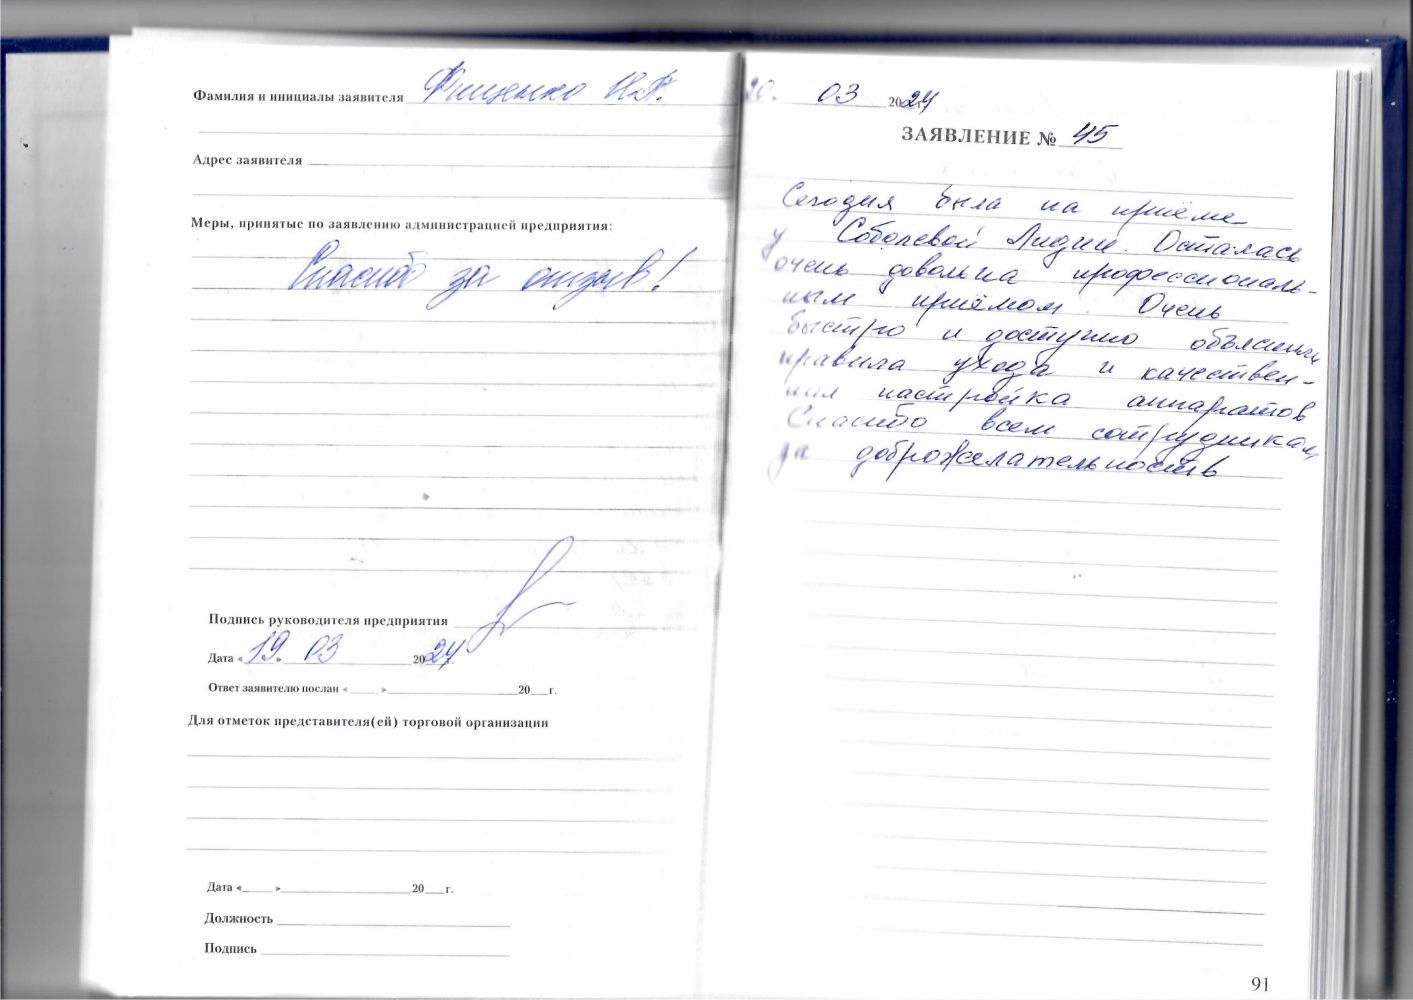 Фамилия и инициалы заявителя Фищенко Н.А.
Адрес заявителя
Меры, принятые по заявлению администрацией предприятия:
Спасибо за отзыв!
Подпись руководителя предприятия
Дата «19» 03 2024 г.
Ответ заявителю послан « » 20 г.
Для отметок представителя(ей) торговой организации
Дата « » 20 г.
Должность
Подпись
20. 03 2024
ЗАЯВЛЕНИЕ № 45
Сегодня была на приёме
у Соболевой Лидии. Осталась
очень довольна профессиональ-
ным приёмом. Очень
быстро и доступно объяснили
правила ухода и качествен-
ная настройка аппаратов
Спасибо всем сотрудникам
за доброжелательность
91